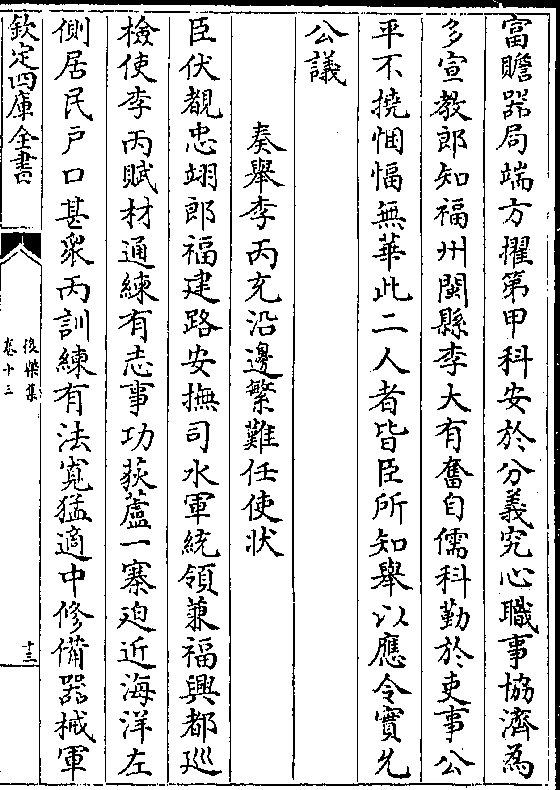 富贍器局端方擢第甲科安於分義究心職事協濟為
多宣教郎知福州閩縣李大有奮自儒科勤於吏事公
平不撓悃愊無華此二人者皆臣所知舉以應令實允
公議
奏舉李丙充沿邊繁難任使狀
臣伏覩忠翊郎福建路安撫司水軍統領兼福興都廵
檢使李丙賦材通練有志事功荻蘆一寨廹近海洋左
側居民戸口甚衆丙訓練有法寛猛適中修備器械軍
欽定四庫全書
後樂集
卷十三
十三